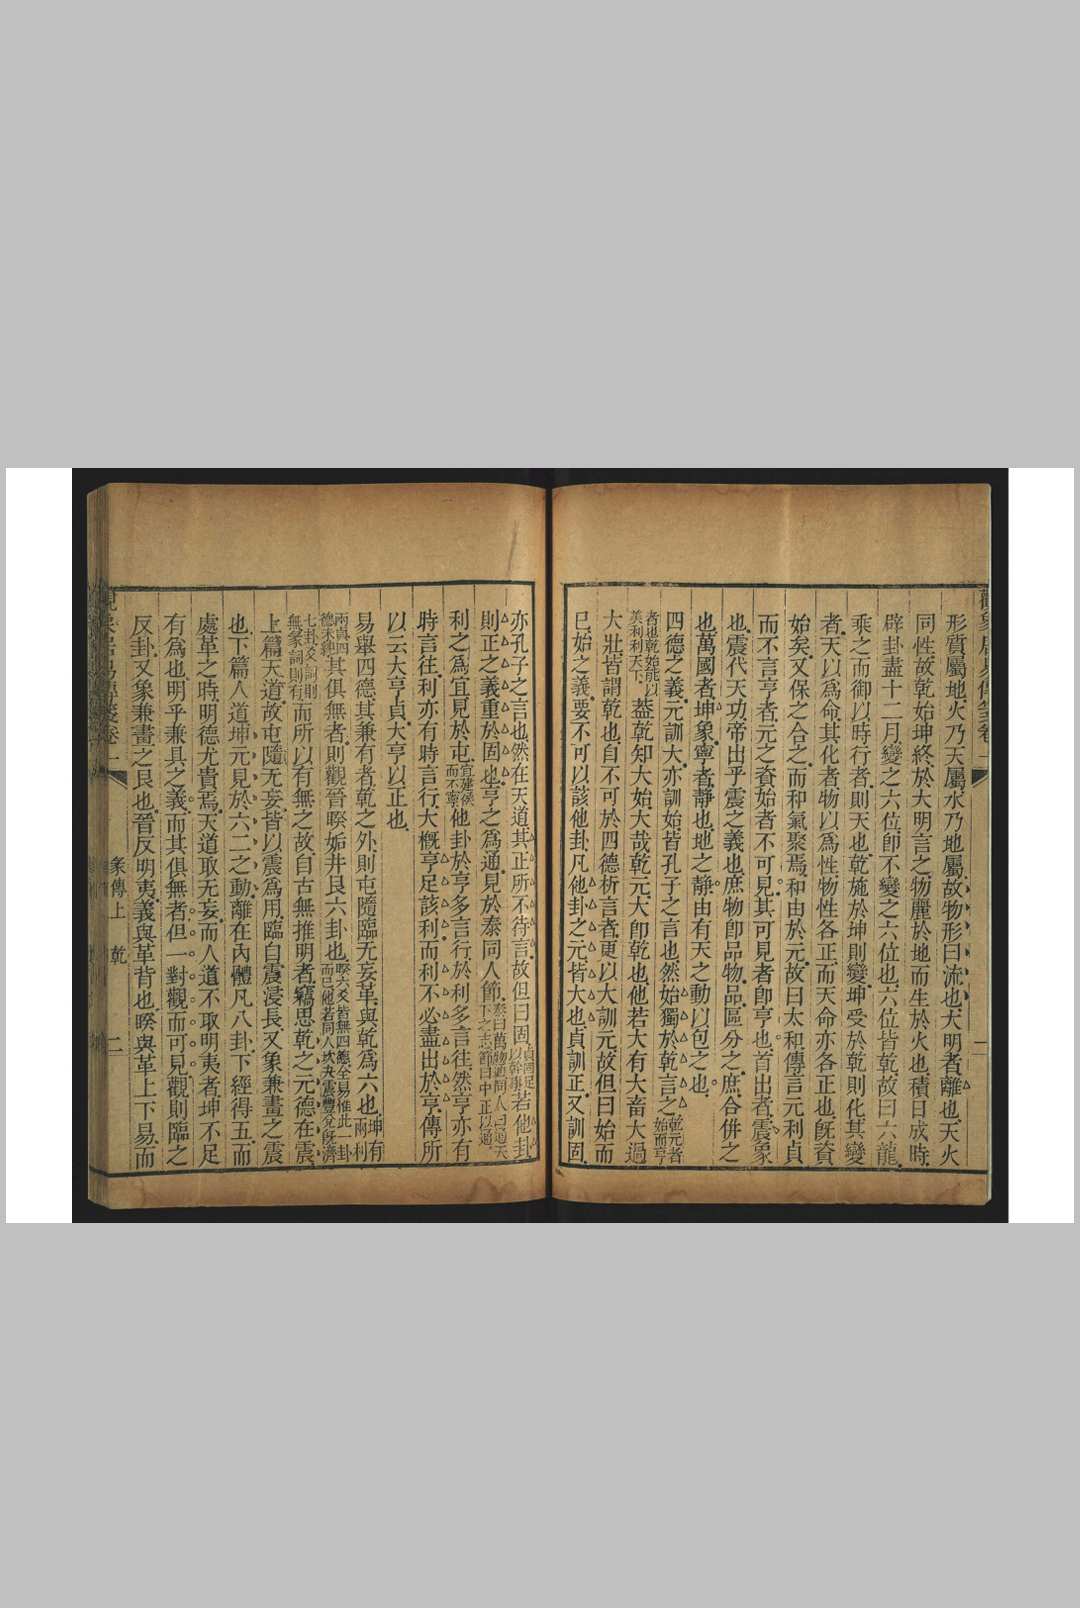 形質屬地火乃天屬水乃地屬故物形曰流也大明者離也天火
同性故乾始坤終於大明言之物麗於地而生於火也積日成時
辟卦盡十二月變之六位卽不變之六位也六位皆乾故曰六龍
乘之而御以時行者則天也乾施於坤則變坤受於乾則化其變
者天以為命其化者物以為性物性各正而天命亦各正也旣資
始矣又保之合之而和氣聚焉和由於元故曰太和傳言元利貞
而不言亨者元之資始者不可見其可見者卽亨也首出者震象
也震代天功帝出乎震之義也庶物卽品物品區分之庶合併之
也萬國者坤象寧者靜也地之靜由有天之動以包之也
四德之義元訓大亦訓始皆孔子之言也然始獨於乾言之乾元者始而亨
者也乾始能以美利利天下蓋乾知大始大哉乾元大卽乾也他若大有大畜大過
大壯皆謂乾也自不可於四德析言者更以大訓元故但曰始而
巳始之義要不可以該他卦凡他卦之元皆大也貞訓正又訓固
觀象居易傳箋卷一
一
亦孔子之言也然在天道其正所不待言故但曰固貞固足以幹事若他卦
則正之義重於固也亨之為通見於泰同人節泰曰萬物通同人曰通天下之志節曰中正以通
利之為宜見於屯宜建侯而不寧他卦於亨多言行於利多言往然亨亦有
時言往利亦有時言行大概亨足該利而利不必盡出於亨傳所
以云大亨貞大亨以正也
易舉四德其兼有者乾之外則屯隨臨无妄革與乾為六也坤有兩利
兩貞四德未純其俱無者則觀晉暌姤井艮六卦也暌六爻皆無四德全易惟此一卦而已他若同人坎夬震豐兌旣濟
七卦爻詞則無彖詞則有而所以有無之故自古無推明者竊思乾之元德在震
上篇天道故屯隨无妄皆以震為用臨自震浸長又象兼畫之震
也下篇人道坤元見於六二之動離在內體凡八卦下經得五而
處革之時明德尤貴焉天道取无妄而人道不取明夷者坤不足
有為也明乎兼具之義而其俱無者但一對觀而可見觀則臨之
反卦又象兼畫之艮也晉反明夷義與革背也暌與革上下易而
觀象居易傳箋卷一
彖傳上 乾
二